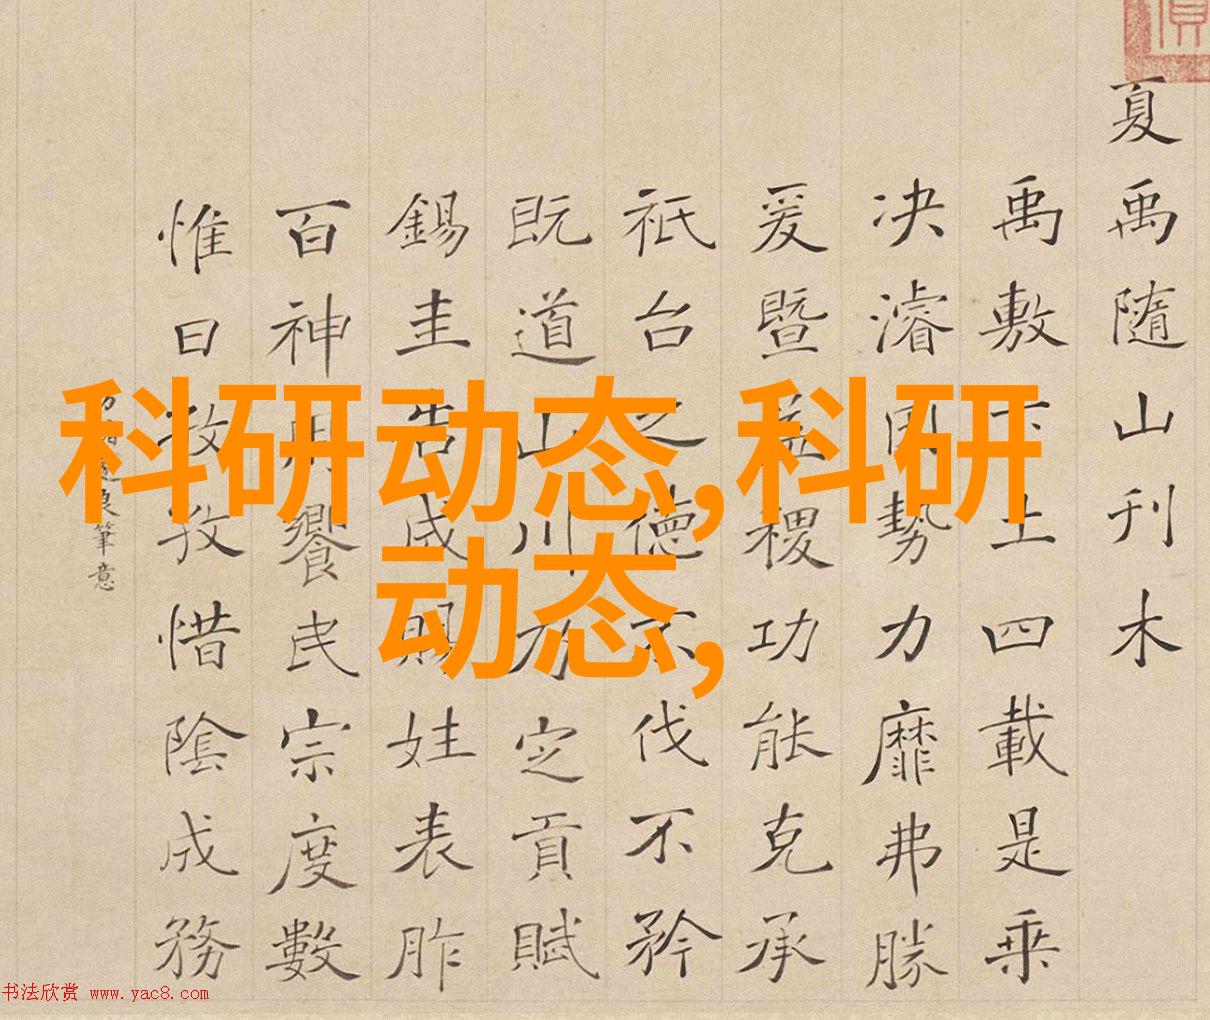 夏禹隨山刊木
禹敷下土四載是乘
决濬因勢力靡弗勝
爰暨益稷功能克承
祇台之德不伐不矜
既道山川乃定貢賦
錫圭告成賜姓表胙
百神朙饗民宗度數
惟日孜孜惜陰成務
遂良筆意
科研动态,科研
动态,
书法欣赏 www.yac8.com